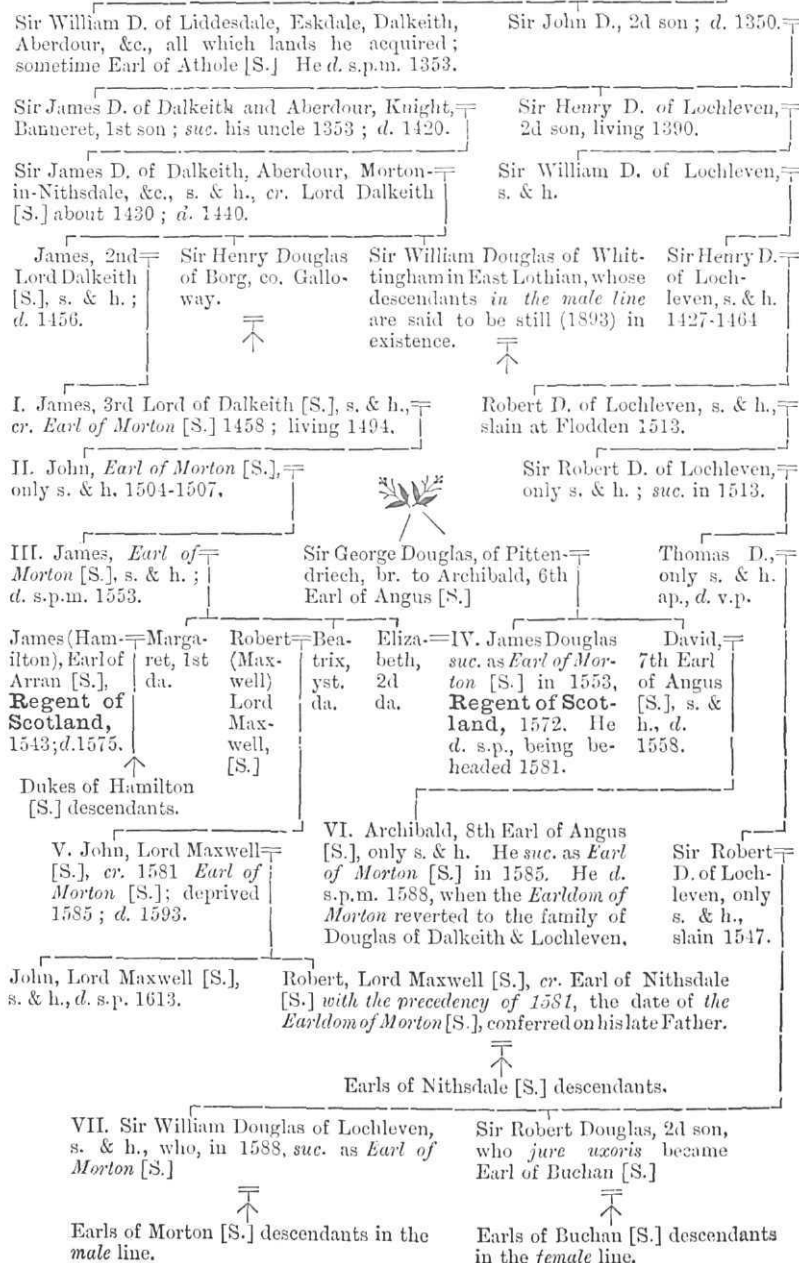 Sir William D. of Liddesdale, Eskdale, Dalkeith,
Aberdour, &c., all which lands he acquired ;
sometime Earl of Athole [S.] He d. s.p.m. 1353.
Sir John D., 2d son ; d. 1350.
Sir James D. of Dalkeith and Aberdour, Knight,
Banneret, 1st son ; suc. his uncle 1353 ; d. 1420.
Sir Henry D. of Lochleven,
2d son, living 1390.
Sir James D. of Dalkeith, Aberdour, Morton-
in-Nithsdale, &c., s. & h., cr. Lord Dalkeith
[S.] about 1430 ; d. 1440.
Sir William D. of Lochleven,
s. & h.
James, 2nd
Lord Dalkeith
[S.], s. & h. ;
d. 1456.
Sir Henry Douglas
of Borg, co. Gallo-
way.
Sir William Douglas of Whit-
tingham in East Lothian, whose
descendants in the male line
are said to be still (1893) in
existence.
Sir Henry D.
of Loch-
leven, s. & h.
1427-1464
I. James, 3rd Lord of Dalkeith [S.], s. & h.,
cr. Earl of Morton [S.] 1458 ; living 1494.
Robert D. of Lochleven, s. & h.,
slain at Flodden 1513.
II. John, Earl of Morton [S.],
only s. & h. 1504-1507.
Sir Robert D. of Lochleven,
only s. & h. ; suc. in 1513.
III. James, Earl of
Morton [S.], s. & h. ;
d. s.p.m. 1553.
Sir George Douglas, of Pitten-
driech, br. to Archibald, 6th
Earl of Angus [S.]
Thomas D.,
only s. & h.
ap., d. v.p.
James (Ham-
ilton), Earl of
Arran [S.],
Regent of
Scotland,
1543; d. 1575.
Marga-
ret, 1st
da.
Robert
(Max-
well)
Lord
Max-
well,
[S.]
Bea-
trix,
yst.
da.
Eliza-
beth,
2d
da.
IV. James Douglas
suc. as Earl of Mor-
ton [S.] in 1553,
Regent of Scot-
land, 1572. He
d. s.p., being be-
headed 1581.
David,
7th Earl
of Angus
[S.], s. &
h., d.
1558.
Dukes of Hamilton
[S.] descendants.
V. John, Lord Maxwell
[S.], cr. 1581 Earl of
Morton [S.]; deprived
1585 ; d. 1593.
VI. Archibald, 8th Earl of Angus
[S.], only s. & h. He suc. as Earl
of Morton [S.] in 1585. He d.
s.p.m. 1588, when the Earldom of
Morton reverted to the family of
Douglas of Dalkeith & Lochleven.
Sir Robert
D. of Loch-
leven, only
s. & h.,
slain 1547.
John, Lord Maxwell [S.],
s. & h., d. s.p. 1613.
Robert, Lord Maxwell [S.], cr. Earl of Nithsdale
[S.] with the precedency of 1581, the date of the
Earldom of Morton [S.], conferred on his late Father.
Earls of Nithsdale [S.] descendants.
VII. Sir William Douglas of Lochleven,
s. & h., who, in 1588, suc. as Earl of
Morton [S.]
Sir Robert Douglas, 2d son,
who jure uxoris became
Earl of Buchan [S.]
Earls of Morton [S.] descendants in the
male line.
Earls of Buchan [S.] descendants
in the female line.